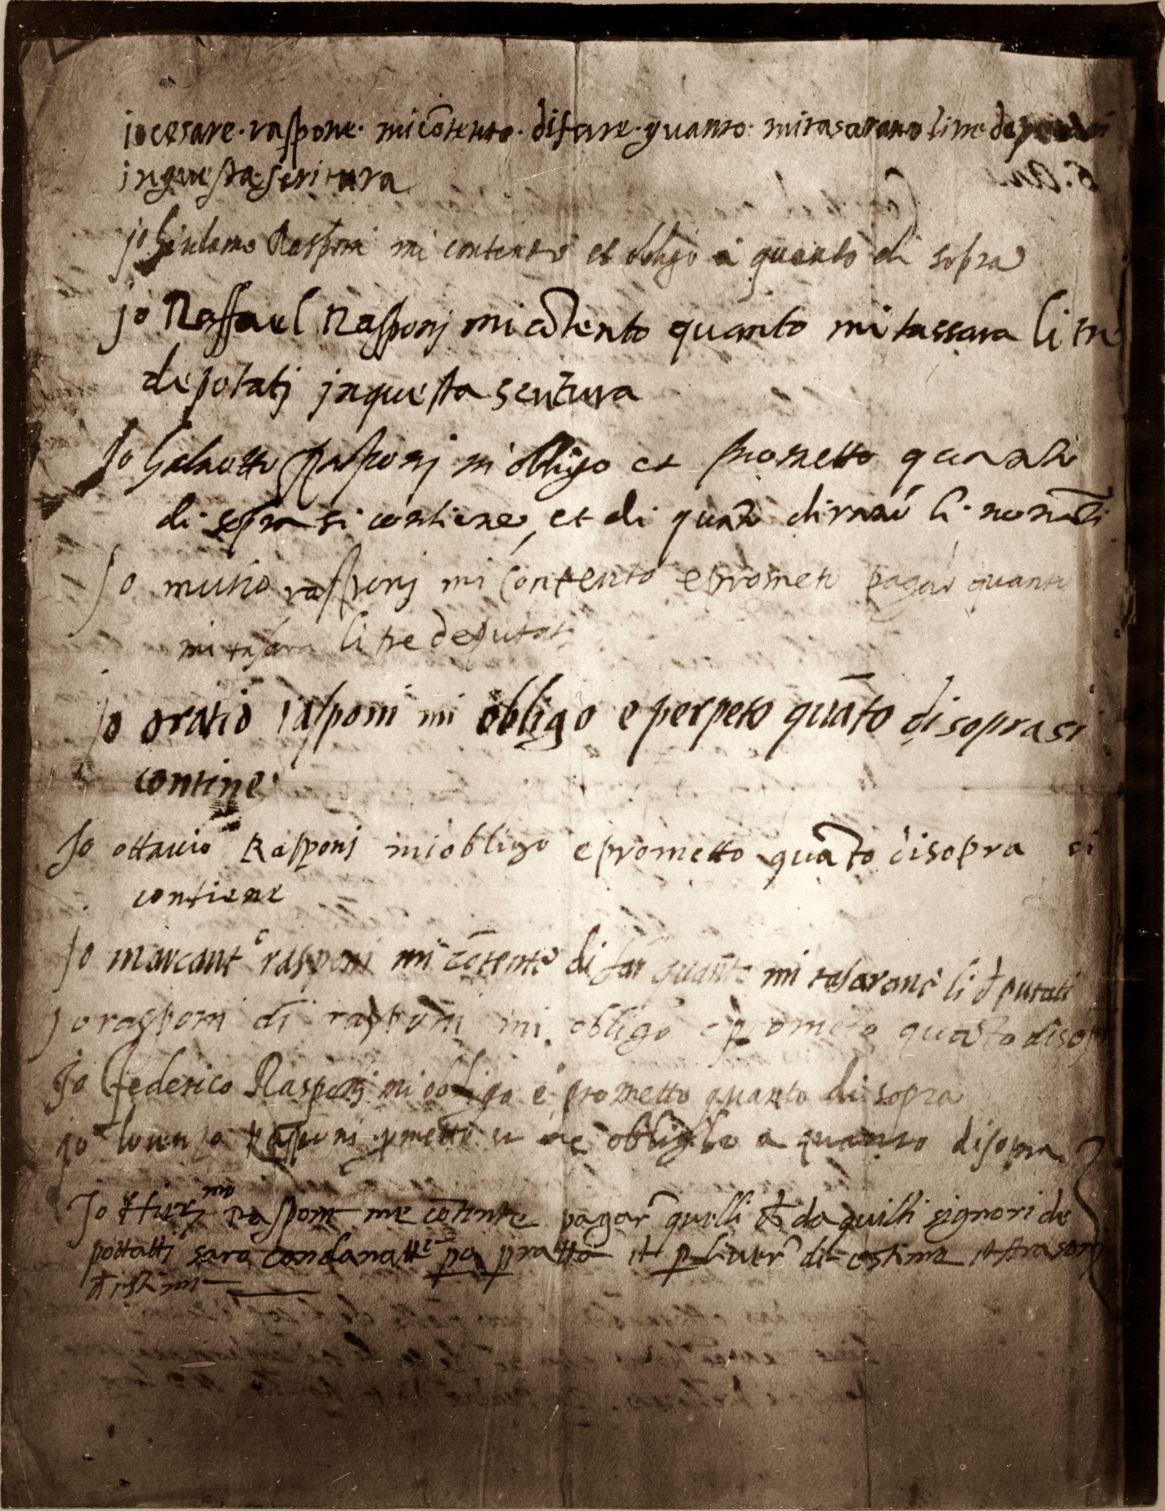 jo cesare · raspone · mi cõtento · di fare · quanto · mi tasarano li tre deputati
in questa scritura
jo Girolamo Rasponi mi contento et obligo a quanto di sopra
jo Raffael Rasponj mi cõtento quanto mi tassara li tre
deputatj jn questa scritura
Jo Galaotto Rasponj mi obligo et prometto quanto
di sopra si contiene, et di quãto dirãno li nomĩati
Jo mutio rasponj mi contento e prometo pagar quanto
mi tasara li tre deputati
jo oratio rasponi mi obligo e perpeto quãto di sopra si
contine
Jo ottavio Rasponj mi obligo e prometto quãto disopra si
contiene
Jo marcantº rasponi mi cõtento di far quanto mi tasarano li deputati
Jo rasponi di rasponi mi obligo e prometo quãto disopra
Jo federico Rasponj mi obligo e prometto quanto di sopra
jo lorenzo Rasponi et me obligo a quanto disopra
Jo rasponi me cõtente pagar quelli da quilli signori de
pottatti sara condanatte